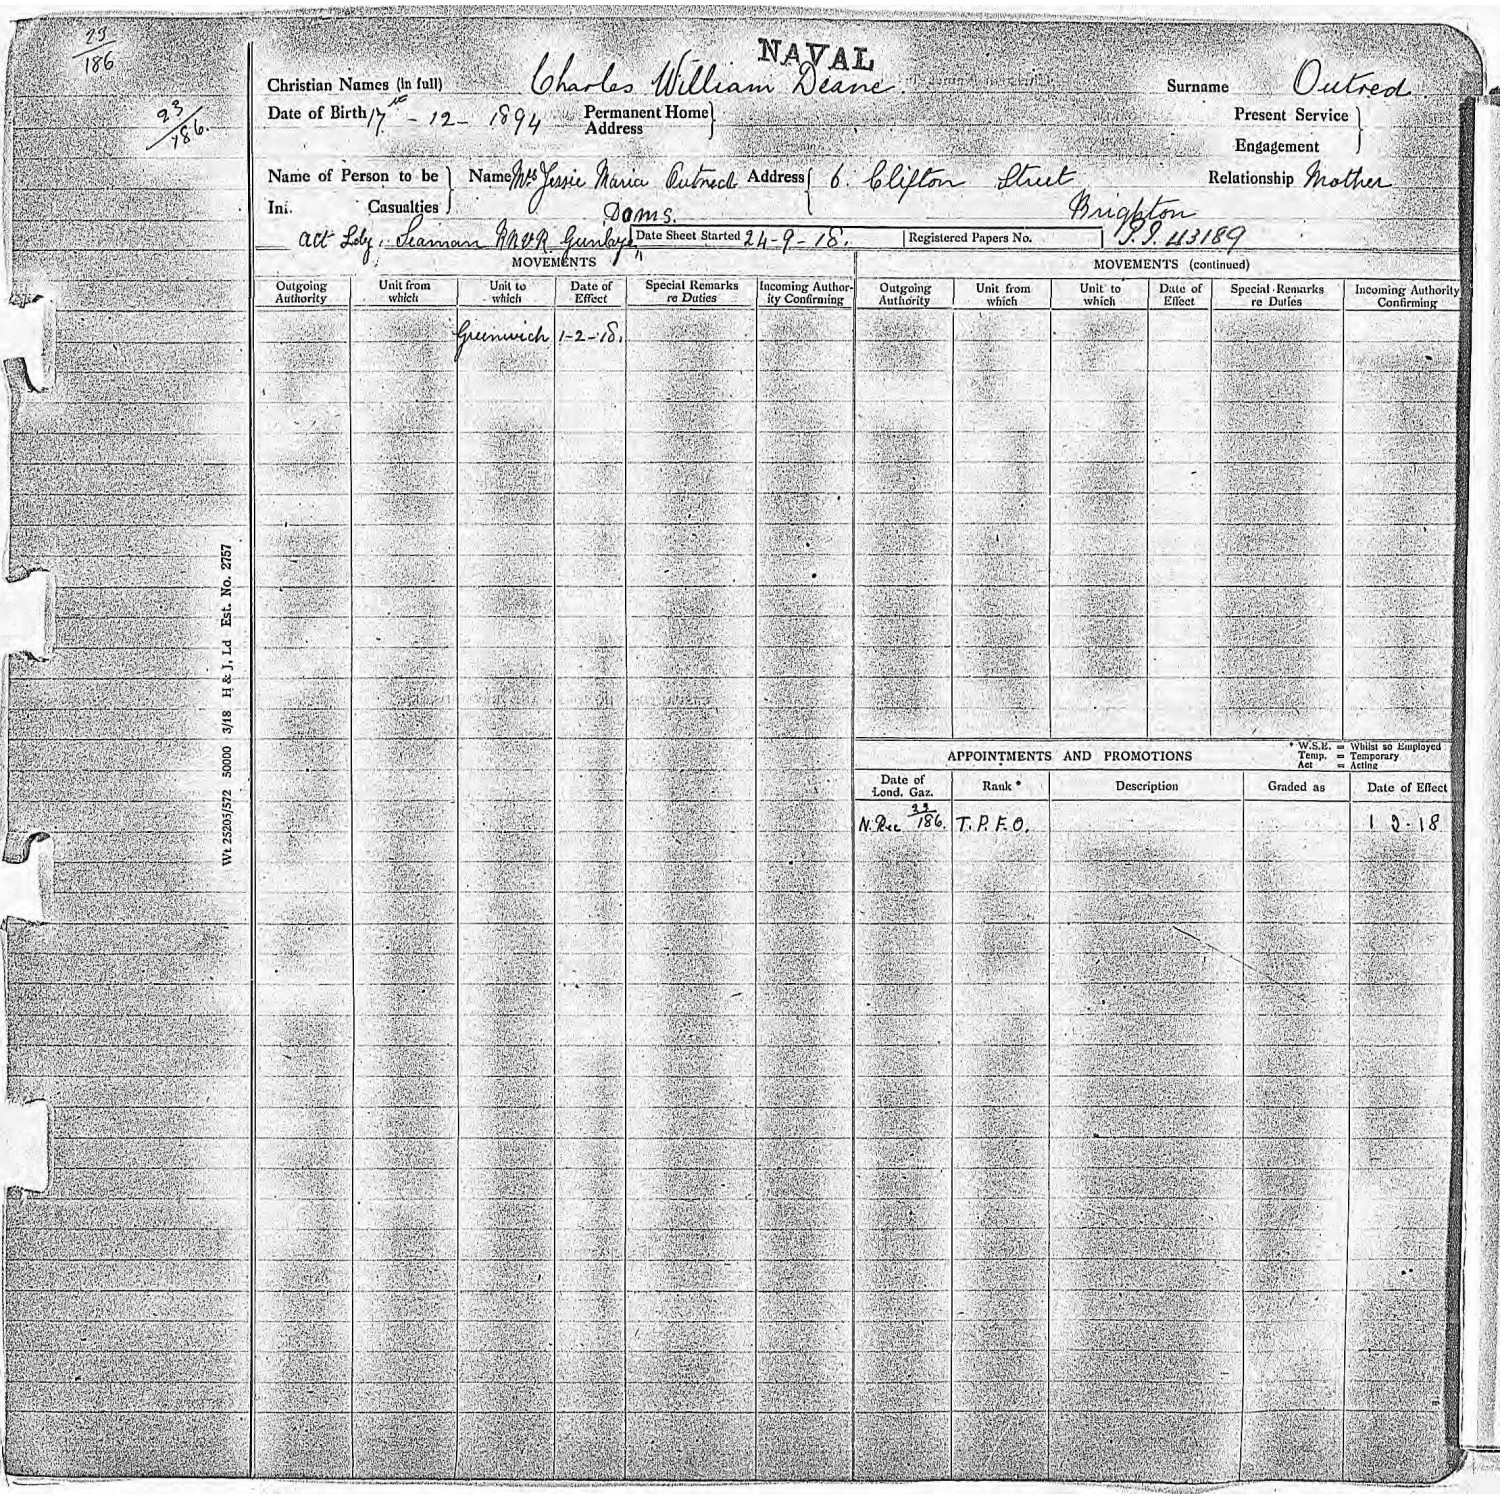 23/186
23/186.
NAVAL
Christian Names (in full) Charles William Deane. Surname Outred.
Date of Birth 17th - 12 - 1894 Permanent Home Address Present Service
Engagement
Name of Person to be Name Mrs Jessie Maria Outred Address 6. Clifton Street Relationship Mother
Ini. Casualties Doms. Brighton
Act Ldg. Seaman RNVR Date Sheet Started 24-9-18. Registered Papers No. 43189
MOVEMENTS MOVEMENTS (continued)
Outgoing Authority Unit from which Unit to which Date of Effect Special Remarks re Duties Incoming Authority Confirming Outgoing Authority Unit from which Unit to which Date of Effect Special Remarks re Duties Incoming Authority Confirming
Greenwich 1-2-18.
Wt 25205/572 50000 3/18 H & J, Ld Est. No. 2757
APPOINTMENTS AND PROMOTIONS
* W.S.E. = Whilst so Employed
Temp. = Temporary
Act = Acting
Date of Lond. Gaz. Rank * Description Graded as Date of Effect
N. Rec 23/186. T.P.F.O. 1 2·18